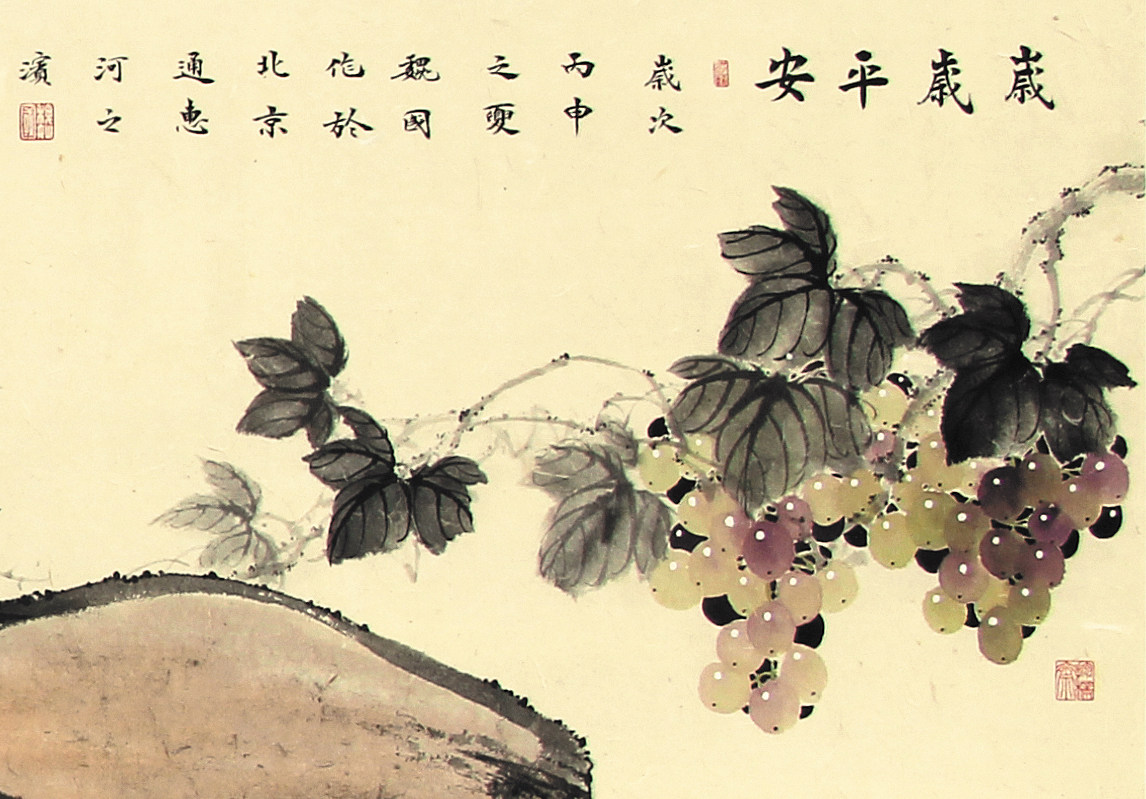 嵗歲平安
嵗次
丙申
之夏
魏國
作於
北京
通惠
河之
濱